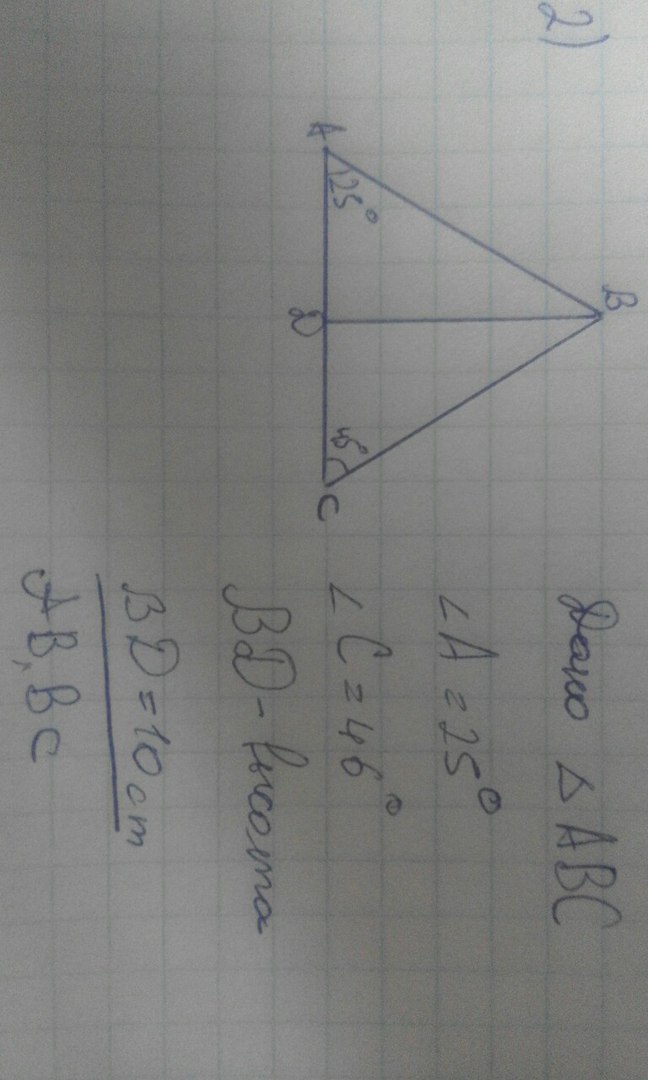 2)
B
A
25°
D
46°
C
Дано △ ABC
∠A = 25°
∠C = 46°
BD - высота
BD = 10 cm
AB, BC